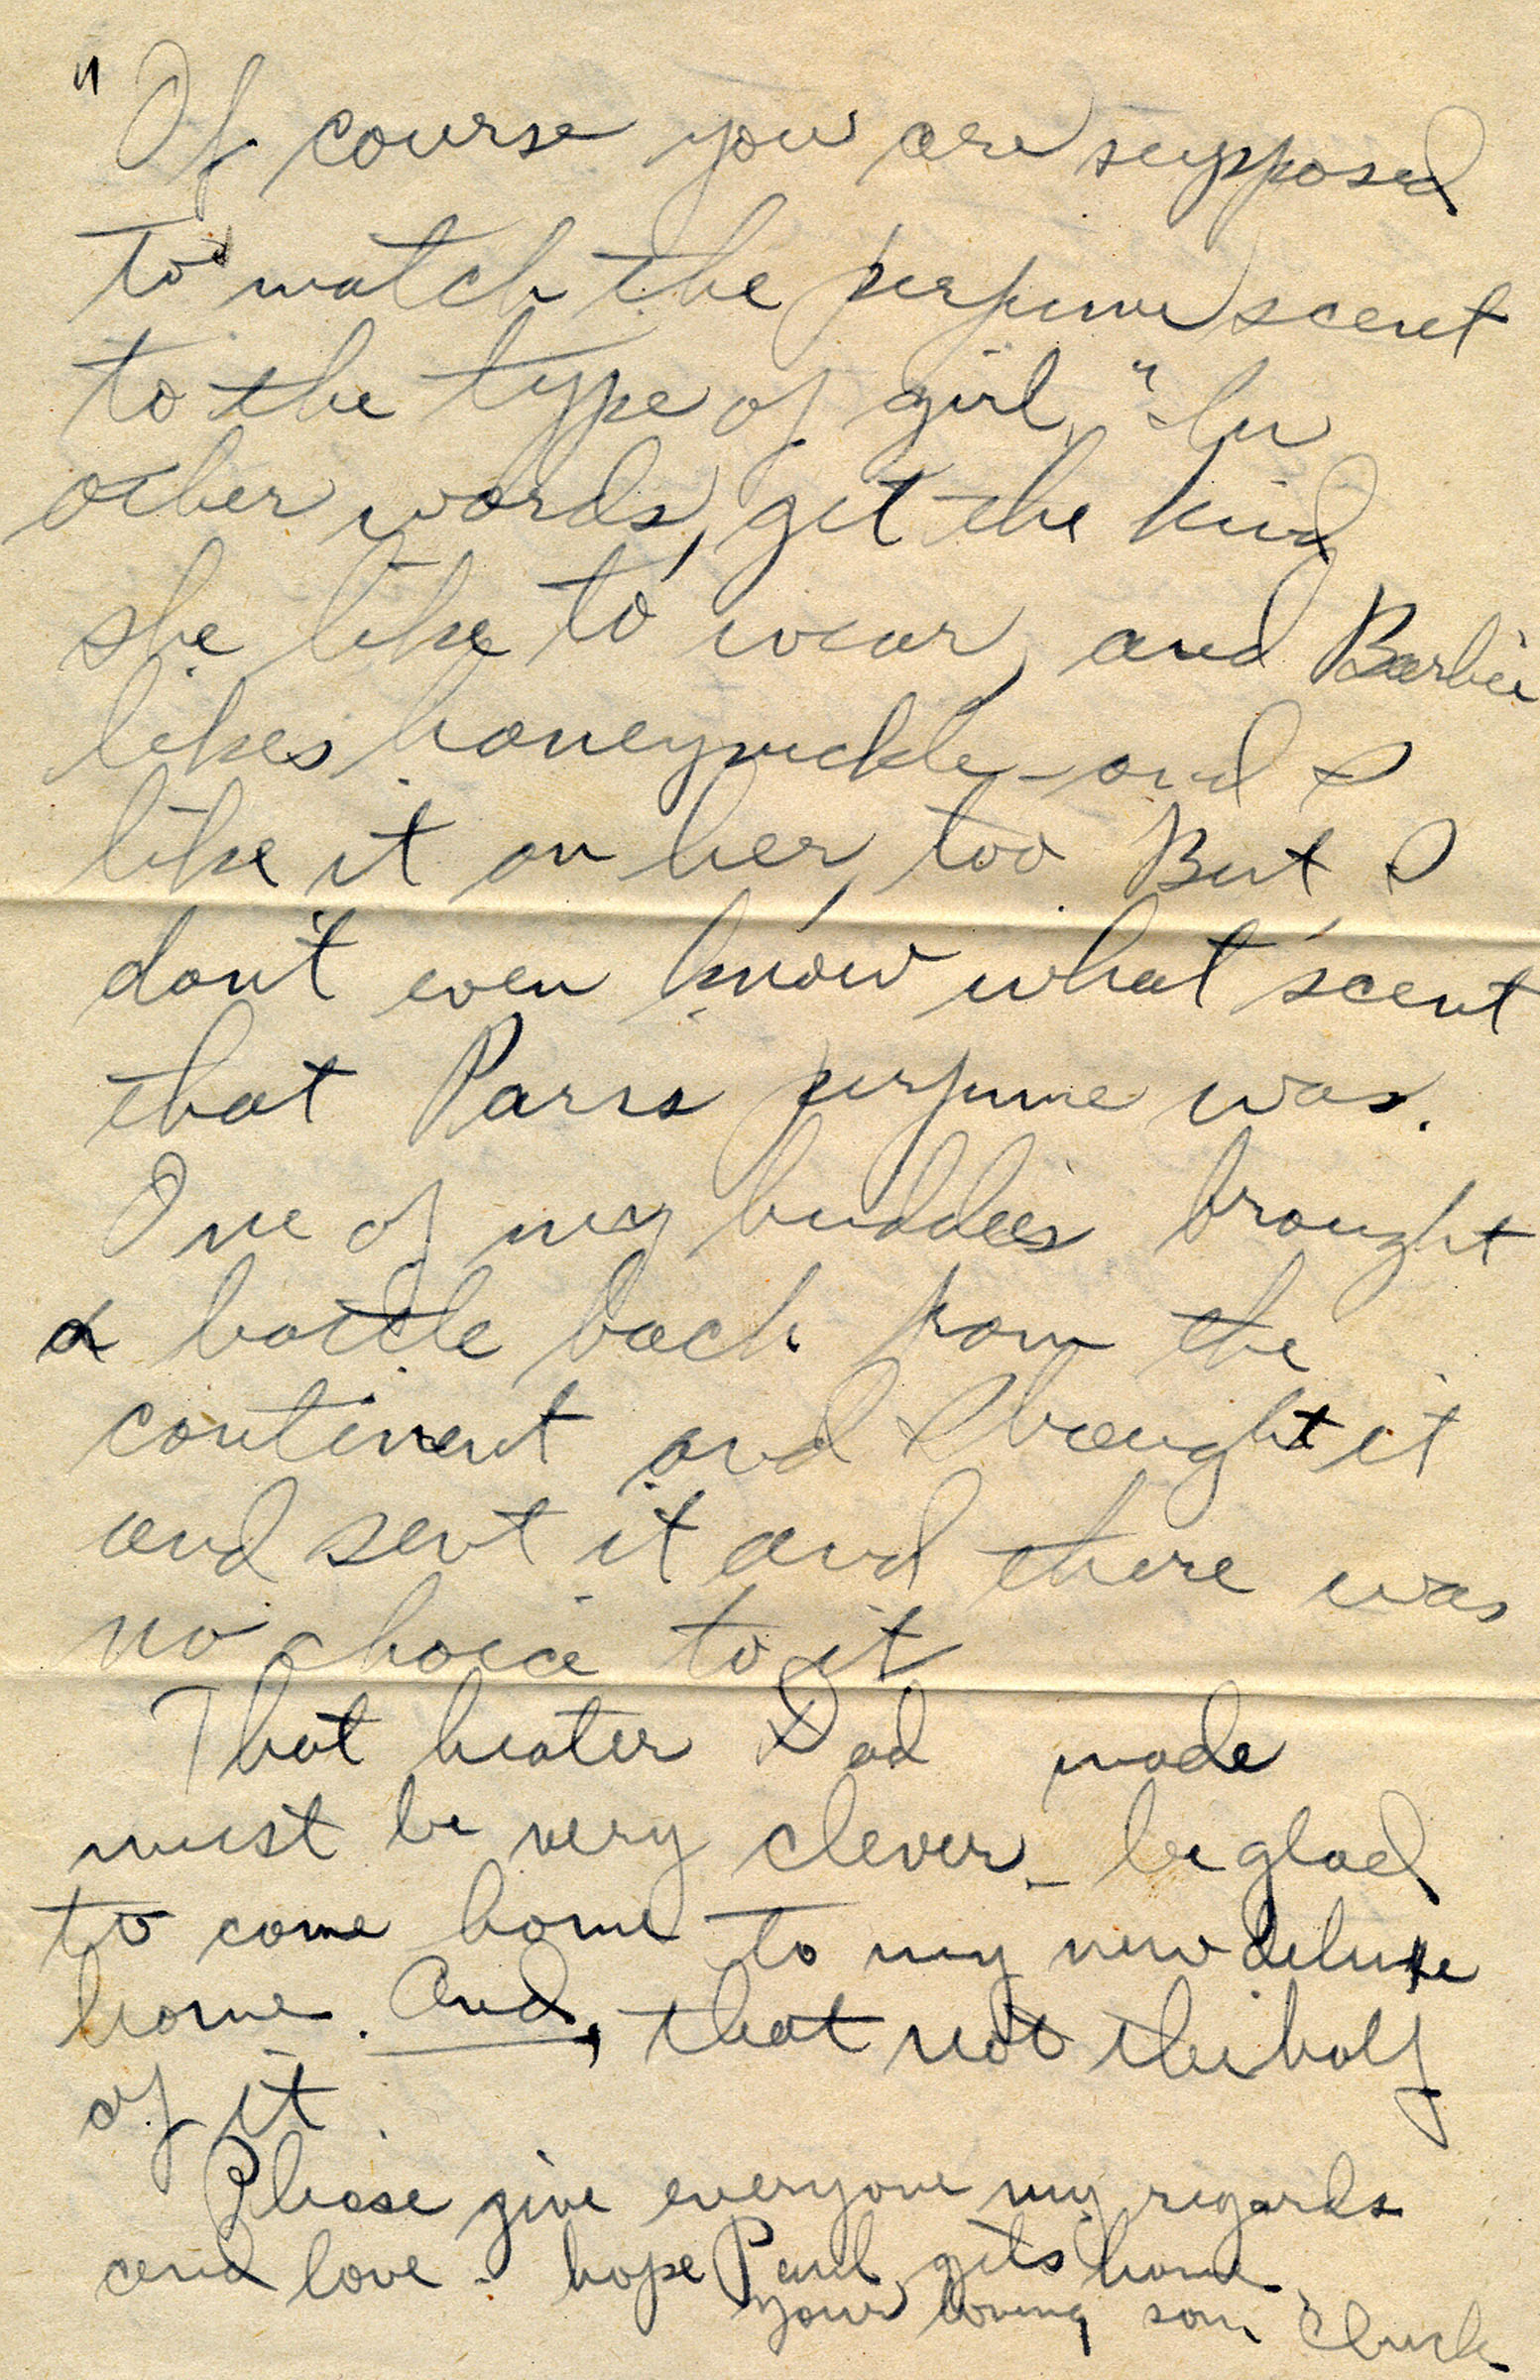 "Of course you are supposed
to match the perfume scent
to the type of girl." In
other words, get the kind
she like to wear, and Barbie
likes honeysuckle - and I
like it on her, too But, I
don't even know what scent
that Paris perfume was.
One of my buddies brought
a bottle back from the
continent and I bought it
and sent it and there was
no choice to it
That heater Dad made
must be very clever - be glad
to come home to my new deluxe
home. And, that not the half
of it.
Please give everyone my regards
and love - hope Paul gets home.
Your loving son Chuck